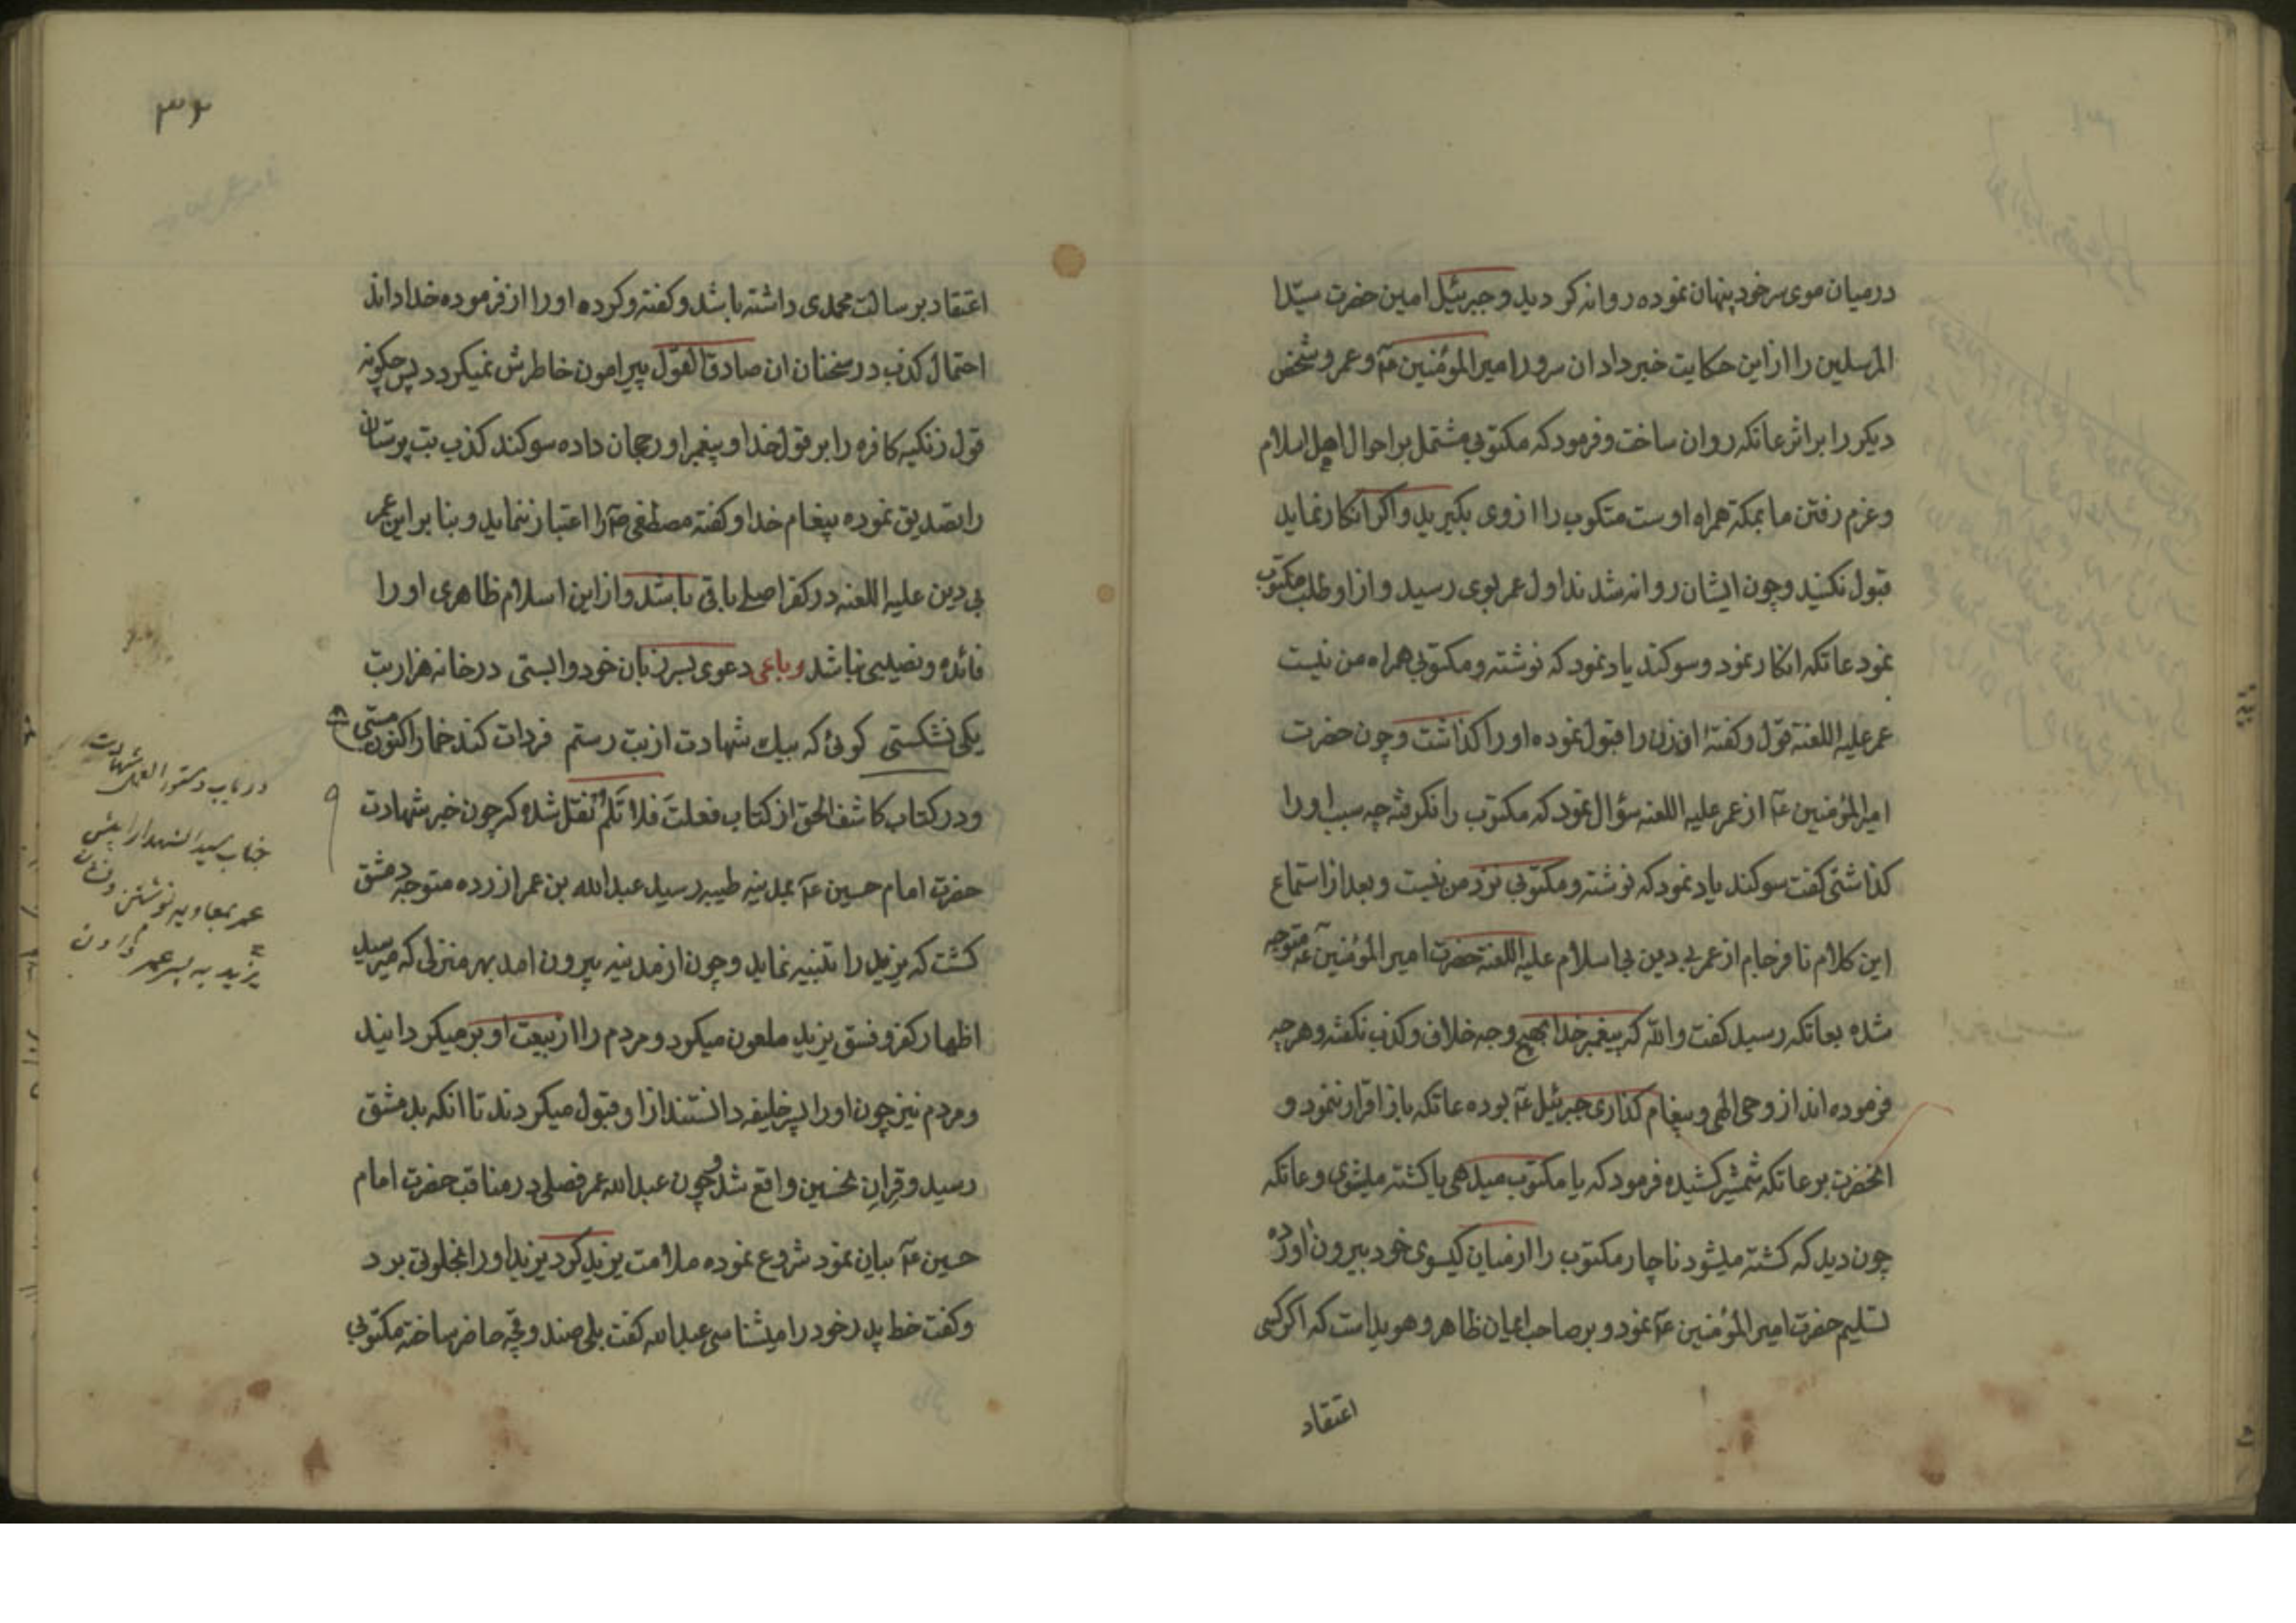 درمیان موی سر خود پنهان نموده روانه کردید و جبرئیل امین حضرت سیّدا
المرسلین را از این حکایت خبر داد ان سرور امیر المؤمنین عم و عمر و شخص
دیکر را بر اثر عاتکه روان ساخت و فرمود که مکتوبی مشتمل بر احوال اهل اسلام
و عزم رفتن ما بمکه همراه اوست متکوب را از وی بکیرید و اکر انکار نماید
قبول نکنید و چون ایشان روانه شدند اول عمر بوی رسید و از او طلب مکتوب
نمود عاتکه انکار نمود و سوکند یاد نمود که نوشته و مکتوبی همراه من نیست
عمر علیه اللعنة قول و کفتهٔ ان زن را قبول نموده او را کذاشت و چون حضرت
امیر المؤمنین عم از عمر علیه اللعنه سؤال نمود که مکتوب را نکرفته چه سبب او را
کذاشتی کفت سوکند یاد نمود که نوشته و مکتوبی نزد من نیست و بعد از استماع
این کلام نافرجام از عمر بی دین بی اسلام علیه اللعنة حضرت امیر المؤمنین عم متوجه
شده بعاتکه رسید کفت والله که پیغمبر خدا بهیچ وجه خلاف و کذب نکفته و هر چه
فرموده اند از وحی الهی و پیغام کذاری جبرئیل عم بوده عاتکه باز اقرار ننمود و
انحضرت بر عاتکه شمشیر کشیده فرمود که یا مکتوب میدهی یا کشته میشوی و عاتکه
چون دید که کشته میشود ناچار مکتوب را از میان کیسوی خود بیرون اورده
تسلیم حضرت امیر المؤمنین عم نمود و بر صاحب ایمان ظاهر و هویداست که اکر کسی
اعتقاد
۳۲
اعتقاد بر سالت محمدی داشته باشد و کفته و کرده او را از فرموده خدا داند
احتمال کذب در سخنان ان صادق القول پیرامون خاطرش نمیکردد پس چکونه
قول زنکیه کافره را بر قول خدا و پیغمبر او رجحان داده سوکند کذب بت پرستان
را تصدیق نموده پیغام خدا و کفته مصطفی ص را اعتبار ننماید و بنا بر این عمر
بی دین علیه اللعنه در کفر اصلی باقی باشد و از این اسلام ظاهری او را
فائده و نصیبی نباشد رباعی دعوی بسر زبان خود وابستی در خانه هزار بت
یکی نشکستی کوئی که بیک شهادت از بت رستم فردات کند خمار اکنون مستی
و در کتاب کاشف الحق از کتاب فعلت فلا تلم نقل شده که چون خبر شهادت
حضرت امام حسین عم بمدینه طیبه رسید عبدالله بن عمر ازرده متوجه دمشق
کشت که یزید را تنبیه نماید و چون از مدینه بیرون امد بهر منزلی که میرسید
اظهار کفر و فسق یزید ملعون میکرد و مردم را از بیعت او بر میکردانید
و مردم نیز چون او را پسر خلیفه دانستند از او قبول میکردند تا انکه بدمشق
رسید و قران نحسین واقع شد و چون عبدالله عمر فصلی در مناقب حضرت امام
حسین عم بیان نمود شروع نموده ملامت یزید کرد یزید او را بخلوتی برد
و کفت خط پدر خود را میشناسی عبدالله کفت بلی صندوقچه حاضر ساخته مکتوبی
در باب دستور العمل شهادت
جناب سید الشهدا را پیش
عمر بمعاویه نوشتن و نشان
یزید به پسر عمر دادن